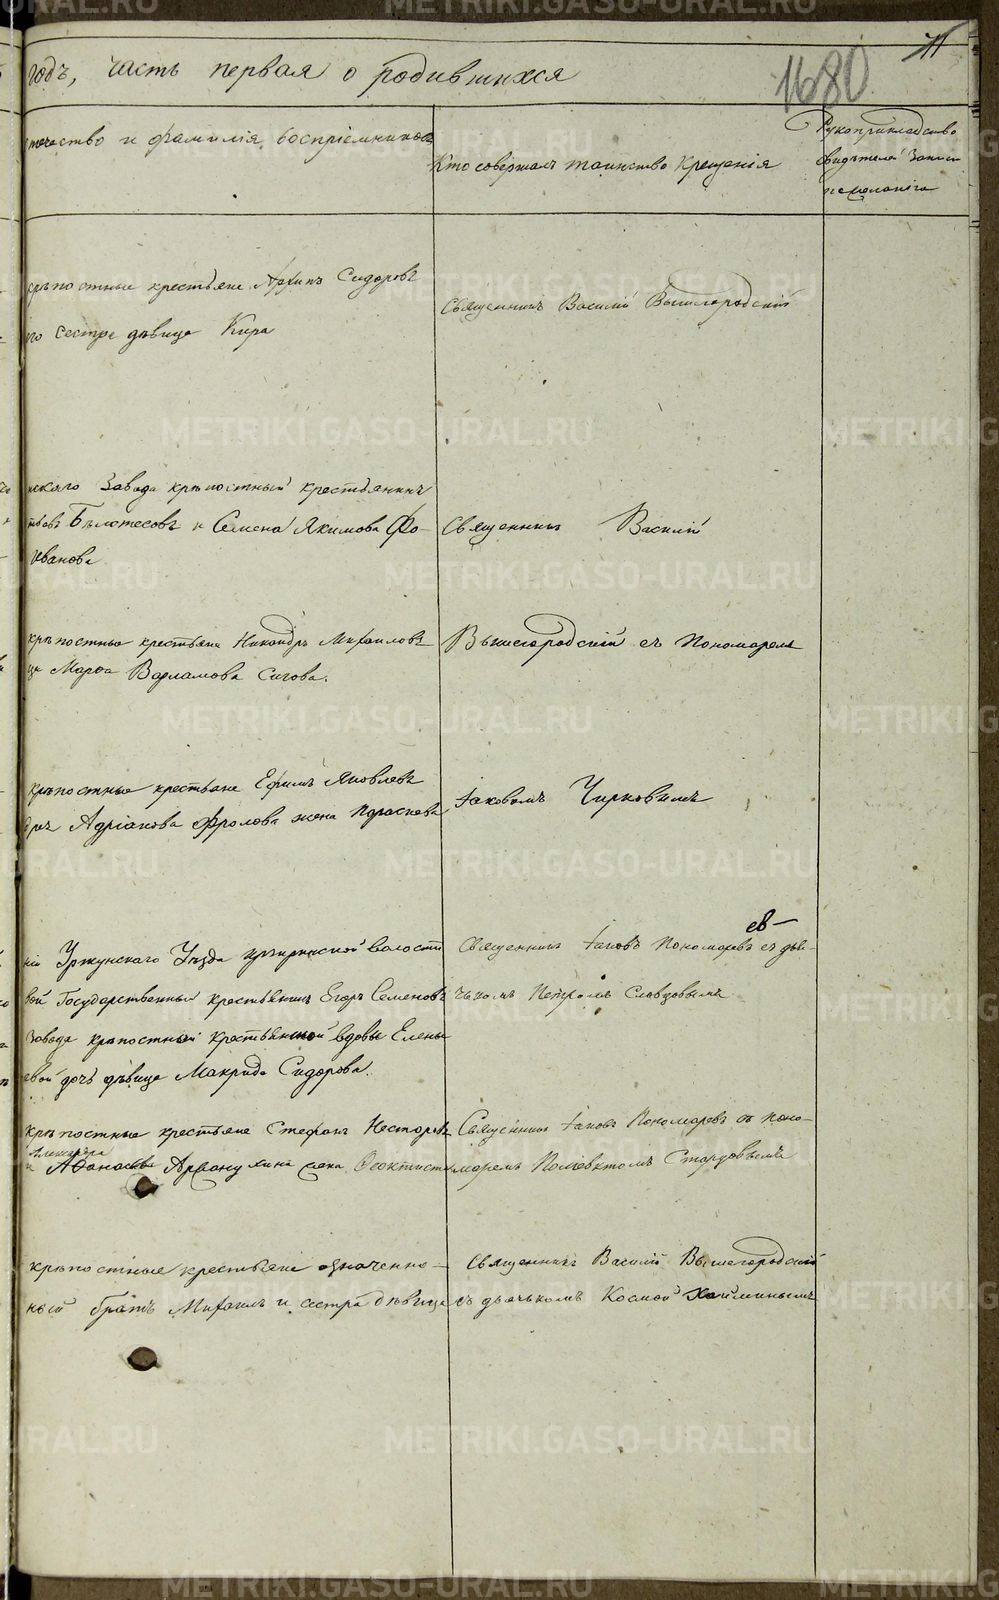 годъ, часть первая о родившихся
1680
отчество и фамилія воспріемниковъ
Кто совершалъ таинство крещенія
Рукоприкладство
свидѣтелей записи
по желанію
крѣпостные крестьяне Архипъ Сидоровъ
его сестра дѣвица Кира
Священникъ Василій Вышегородскій
нскаго Завода крѣпостный крестьянинъ
Бѣлотесовъ и Семена Якимова Фо-
Иванова
Священникъ Василій
крѣпостные крестьяне Никандръ Михаиловъ
ца Марѳа Варламова Сигова.
Вышегородскій съ пономаремъ
крѣпостные крестьяне Ефимъ Яковлевъ
Адріанова Фролова жена Параскева
Іаковомъ Чирковымъ
Уржумскаго Уѣзда волости
вой Государственный крестьянинъ Егоръ Семеновъ
Завода крѣпостной крестьянской вдовы Елены
евой дочь дѣвица Макрида Сидорова.
Священникъ Іаковъ Пономаревъ съ дья-
чкомъ Петромъ Словцовымъ
крѣпостные крестьяне Стефанъ Несторовъ
Афанасьева жена Ѳеоктиста
Священникъ Іаковъ Пономаревъ съ поно-
маремъ Поліевктомъ
крѣпостные крестьяне означенно-
ный братъ Михаилъ и сестра дѣвица
Священникъ Василій Вышегородскій
съ дьячкомъ Космой
METRIKI.GASO-URAL.RU